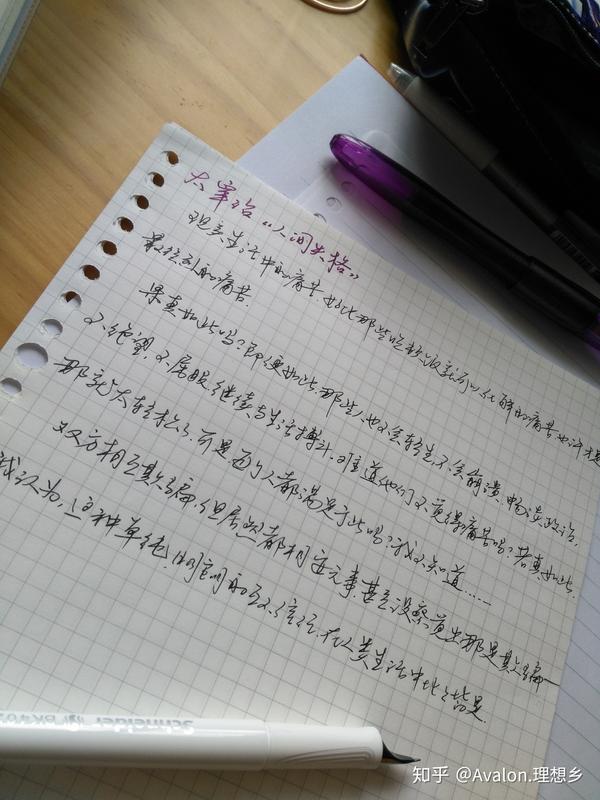 太宰治“人间失格”
现实生活中的痛苦.好比那些吃些饭就可以化解的痛苦也许才是
最强烈的痛苦.
果真如此吗?即便如此.那些人也不会轻生.不会崩溃.畅谈政治.
不绝望.不屈服继续与生活搏斗.难道他们不觉得痛苦吗?若真如此.
那就太轻松了.可是每个人都满足于此吗?我不知道……
双方相互欺骗.但居然都相安无事.甚至没察觉出那是欺骗—
我认为,这种单纯.明朗的不信任.在人类生活中比比皆是.
Schneider BK402
知乎 @Avalon.理想乡